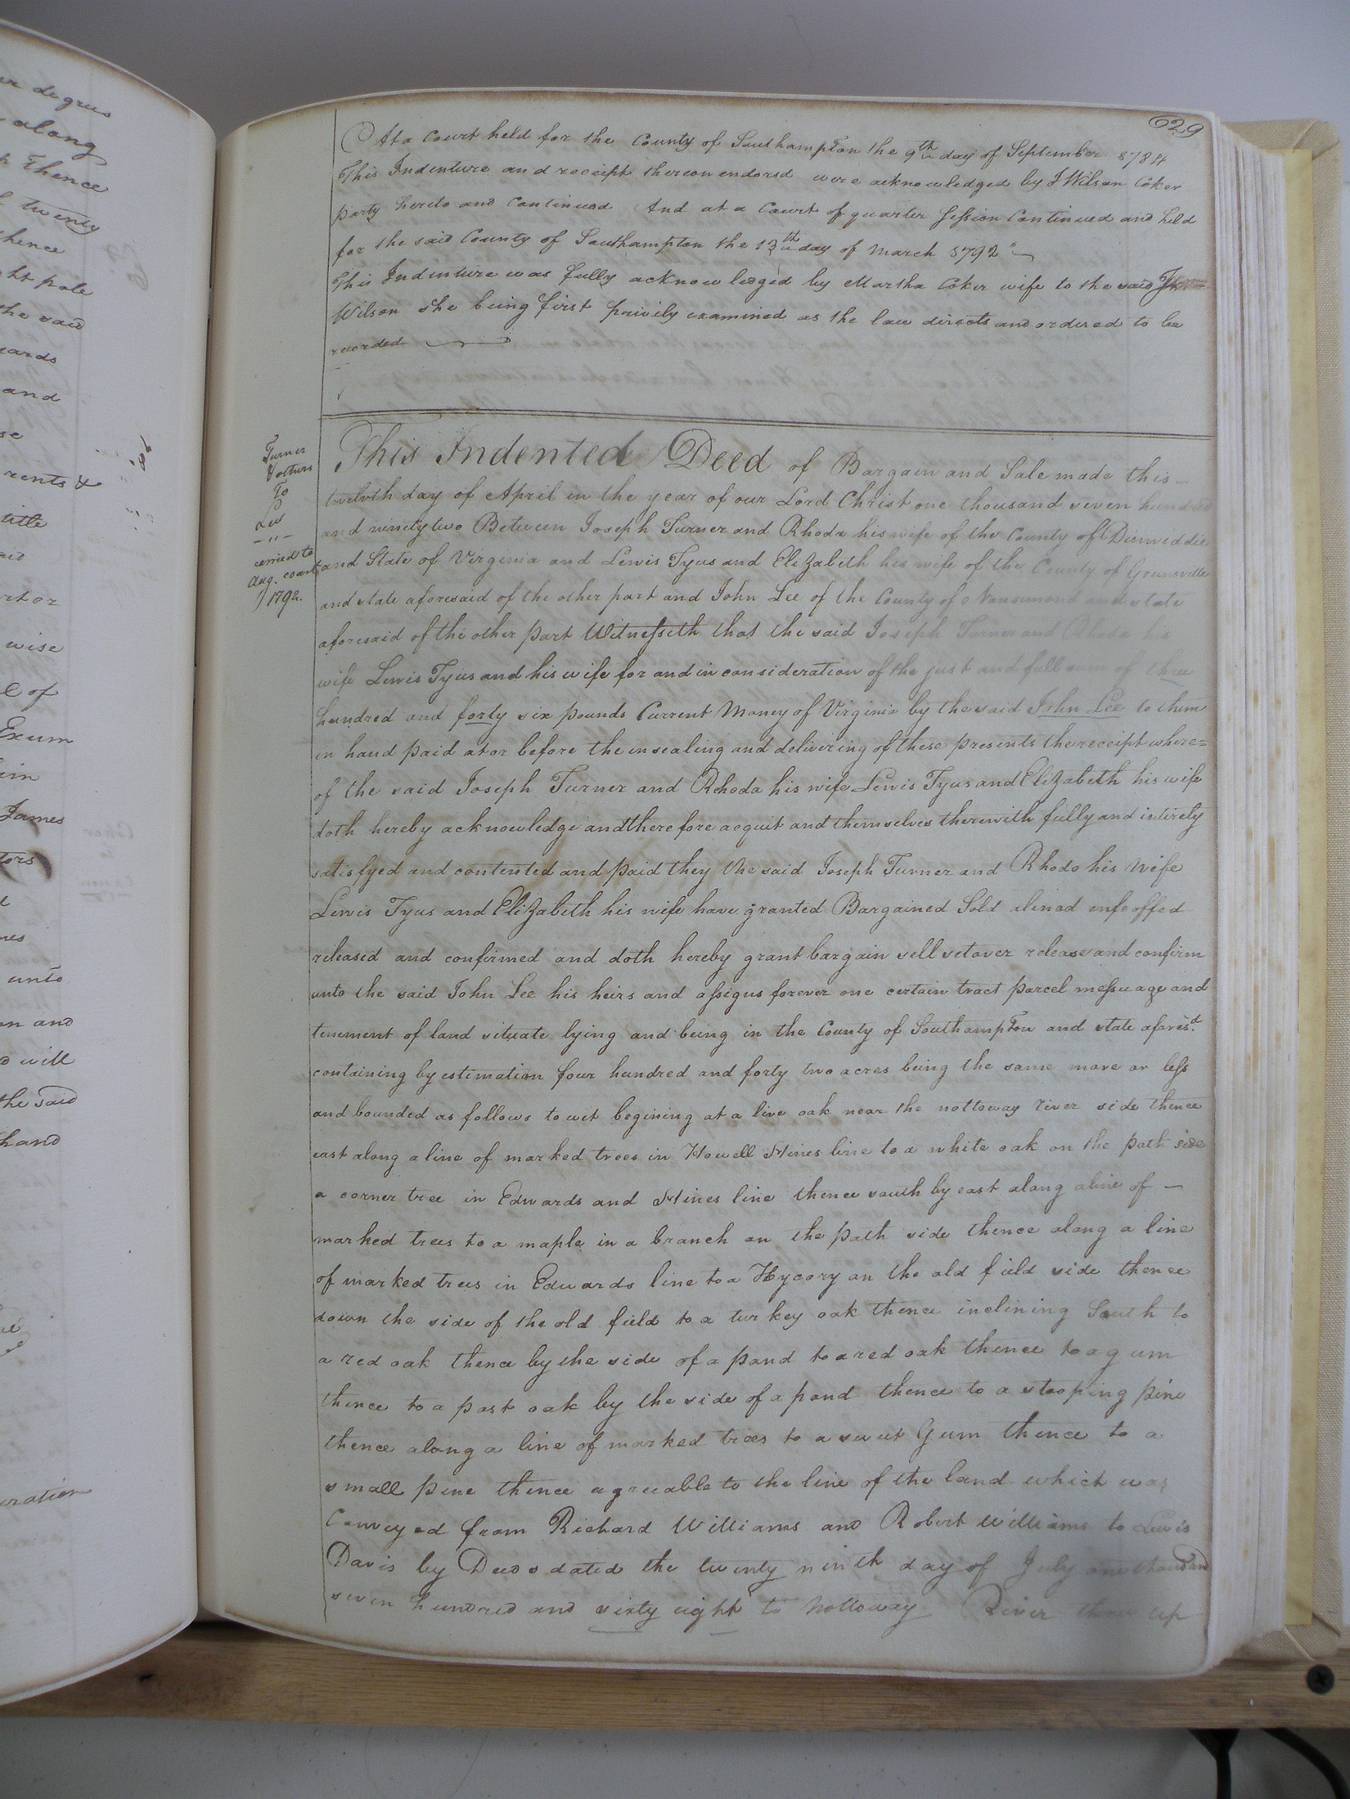 er degrees
along
thence
twenty
thence
ht pole
the said
wards
and
se
rents &
title
aid
wise
l of
Exum
James
tors
unto
on and
o will
the said
hand
eration
629
At a Court held for the County of Southampton the 9th day of September 1784
This Indenture and receipt thereon endorsd were acknowledged by J Wilson Coker
party hereto and Continued And at a Court of quarter Session Continued and held
for the said County of Southampton the 13th day of March 1792
This Indenture was fully acknowledged by Martha Coker wife to the said
Wilson She being first privily examined as the law directs and ordered to be
recorded
Turner
& others
To
Lee
carried to
Aug. court
1792.
This Indented Deed of Bargain and Sale made this
twelvth day of April in the year of our Lord Christ one thousand seven hundred
and ninety two Between Joseph Turner and Rhoda his wife of the County of Dinwiddie
and State of Virginia and Lewis Tyus and Elizabeth his wife of the County of Greensville
and state aforesaid of the other part and John Lee of the County of Nansemond and state
aforesaid of the other part Witnesseth that the said Joseph Turner and Rhoda his
wife Lewis Tyus and his wife for and in consideration of the just and full sum of three
hundred and forty six pounds Current Money of Virginia by the said John Lee to them
in hand paid at or before the insealing and delivering of these presents the receipt where=
of the said Joseph Turner and Rhoda his wife Lewis Tyus and Elizabeth his wife
doth hereby acknowledge and therefore acquit and themselves therewith fully and intirely
satisfyed and contented and paid they the said Joseph Turner and Rhoda his wife
Lewis Tyus and Elizabeth his wife have granted Bargained Sold alinad enfeoffed
released and confirmed and doth hereby grant bargain sell set over release and confirm
unto the said John Lee his heirs and assigns forever one certain tract parcel messuage and
tenement of land situate lying and being in the County of Southampton and state aforesd.
containing by estimation four hundred and forty two acres being the same more or less
and bounded as follows to wit begining at a live oak near the nottoway river side thence
east along a line of marked trees in Howell Hines line to a white oak on the path side
a corner tree in Edwards and Hines line thence south by east along a line of
marked trees to a maple in a branch on the path side thence along a line
of marked trees in Edwards line to a Hycory on the old field side thence
down the side of the old field to a turkey oak thence inclining South to
a red oak thence by the side of a pond to a red oak thence to a gum
thence to a post oak by the side of a pond thence to a stooping pine
thence along a line of marked trees to a sweet Gum thence to a
small pine thence agreeable to the line of the land which was
Conveyed from Richard Williams and Robert Williams to Lewis
Davis by Deeds dated the twenty ninth day of July one thousand
seven hundred and sixty eight to Nottoway River thence up